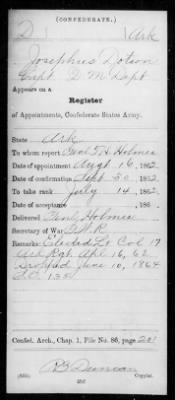 (CONFEDERATE.)
D | Ark
Josephus Dotson
Capt. D M Dept
Appears on a
Register
of Appointments, Confederate States Army.
State Ark
To whom report Genl T H Holmes
Date of appointment Augt 16, 1862
Date of confirmation Sept 30, 1862
To take rank July 14, 1862
Date of acceptance , 186 .
Delivered Genl Holmes
Secretary of War G W R
Remarks: Elected Lt Col 17
Ark Rgt. Apl 16, 62
Dropped June 10, 1864
S.O. 135
Confed. Arch., Chap. 1, File No. 86, page 201
R B Duncan
Copyist.